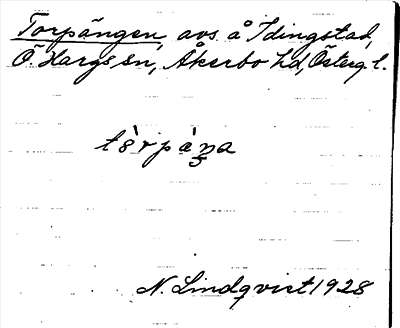 Torpängen, avs å Idingstad,
Ö. Hargs sn, Åkerbo hd, Österg. l.
N. Lindqvist 1928